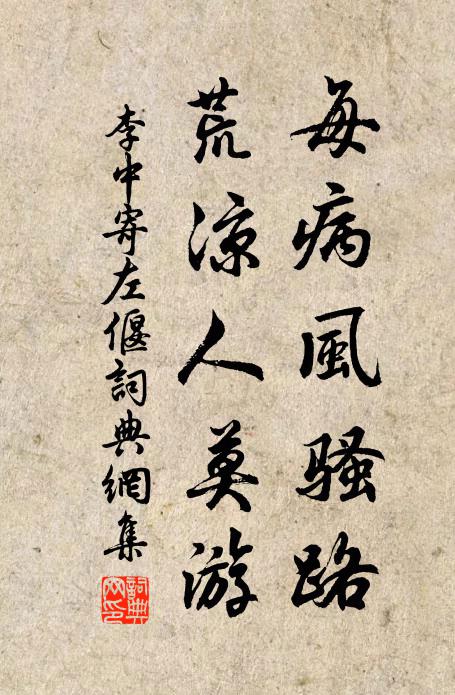 每病風騷路
荒涼人莫游
李中寄左偃詞典網集
詞典网印